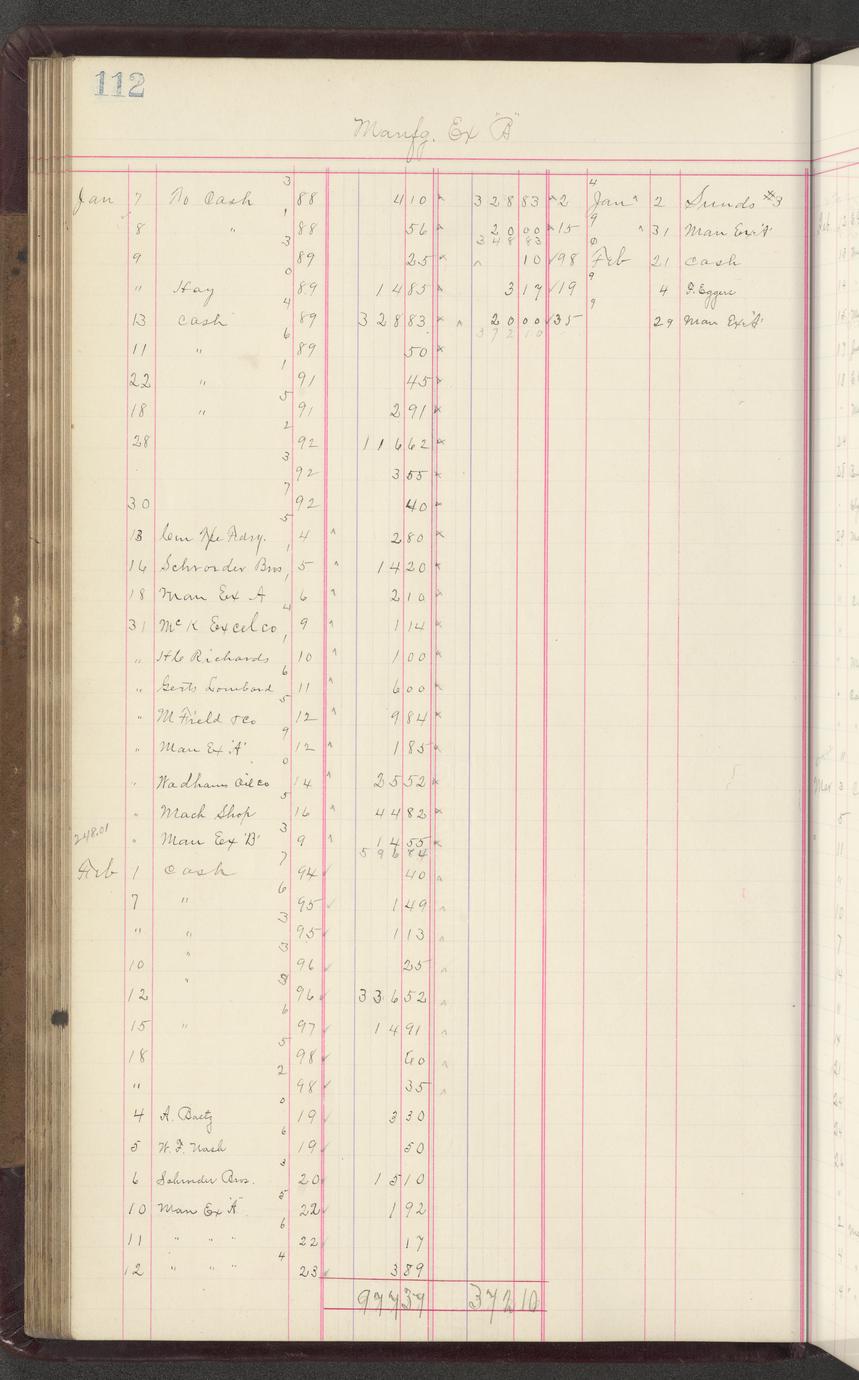 112
Manfg. Ex "B"
Jan 7 To Cash 3 88 4 10 328 83 2 4 Jan 2 Sunds #3
8 " 1 88 56 20 00 15 9 " 31 Man Ex "A"
348 83
9 3 89 25 10 98 0 Feb 21 Cash
" Hay 0 89 14 85 3 17 19 9 4 F. Eggers
13 Cash 4 89 328 83 20 00 35 9 29 Man Ex "A"
372 10
11 " 6 89 50
22 " 1 91 45
18 " 5 91 2 91
28 2 92 116 62
3 92 3 55
30 7 92 40
13 5 4 2 80
16 Schroeder Bros 1 5 14 20
18 Man Ex A 1 6 2 10
31 McK Excel co 4 9 1 14
" Richards 1 10 1 00
" Gerts Lombard 6 11 6 00
" M Field & co 5 12 9 84
" Man Ex "A" 9 12 1 85
" Wadhams Oil co 0 14 25 52
" Mach Shop 5 16 44 82
248.01
" Man Ex "B" 3 9 14 55
596 84
Feb 1 Cash 7 94 40
7 " 6 95 1 49
" " 3 95 1 13
10 " 3 96 25
12 " 8 96 336 52
15 " 6 97 14 91
18 5 98 60
" 2 98 35
4 A. Baetz 0 19 3 30
5 W. F. Nash 6 19 50
6 Schroder Bros. 3 20 15 10
10 Man Ex "A" 5 22 1 92
11 " " " 6 22 17
12 " " " 4 23 3 89
977 37 372 10